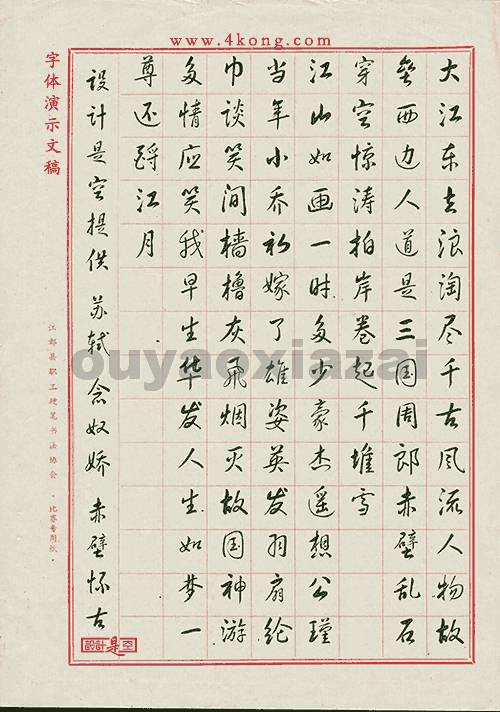 www.4kong.com
大江东去浪淘尽千古风流人物故
垒西边人道是三国周郎赤壁乱石
穿空惊涛拍岸卷起千堆雪
江山如画一时多少豪杰遥想公瑾
当年小乔初嫁了雄姿英发羽扇纶
巾谈笑间樯橹灰飞烟灭故国神游
多情应笑我早生华发人生如梦一
尊还酹江月
设计是空提供 苏轼 念奴娇 赤壁怀古
設計是空
字体演示文稿
江都县职工硬笔书法协会·比赛专用纸·
ouyaoxiazai